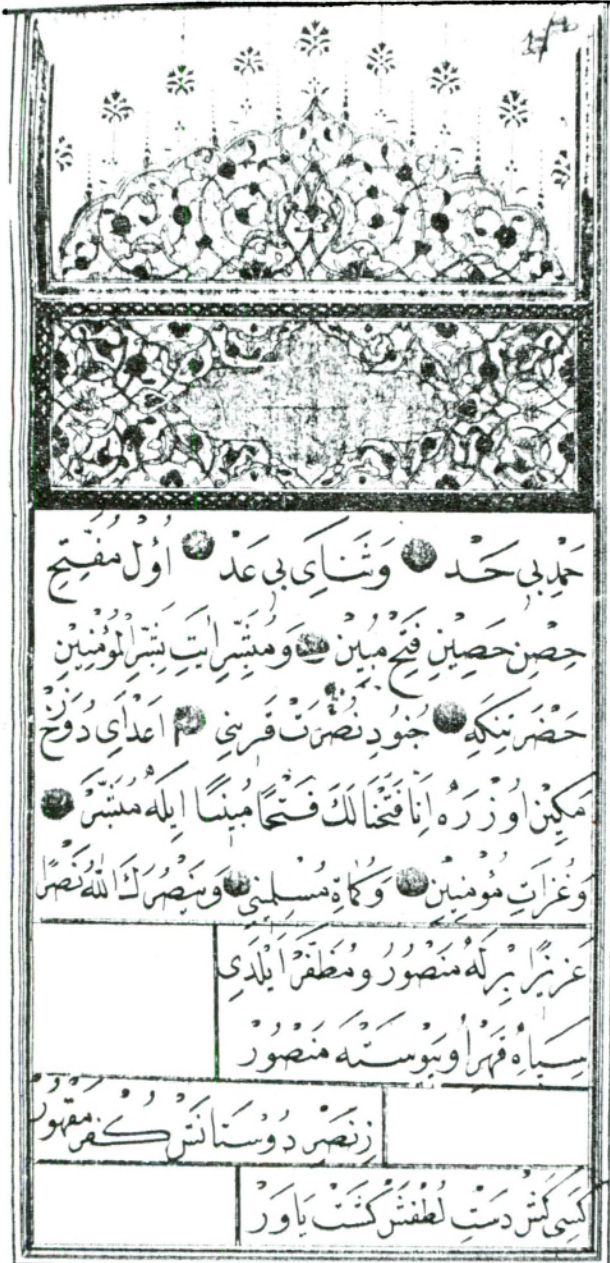 حَمْدِ بِى حَدْ وَثَنَاىِ بِى عَدْ اُوْل مُفَتِّحِ
حِصْنِ حَصِينِ فَتْحِ مُبِينْ وَمُبَشِّرِ اٰيَتِ بَشِّرِ الْمُؤْمِنِينْ
حَضْرَتِنِكِه جُنُودِ نُصْرَتْ قَرِينِى اَعْدَاىِ دُوزَخْ
مَكِينْ اُوزَرَه اِنَّا فَتَحْنَا لَكَ فَتْحًا مُبِينًا اِيلَه مُبَشَّرْ
وَغُزَاتِ مُؤْمِنِينْ وَكُمَاةِ مُسْلِمِينِى وَيَنْصُرَكَ اللّٰهُ نَصْرًا
عَزِيزًا بِرْلَه مَنْصُورْ وَمُظَفَّرْ اَيْلَدِى
سِپَاهِ قَهْرِ اُو پَيْوَسْتَه مَنْصُورْ
زِنَصْرِ دُوسْتَانَشْ كُفْر مَقْهُورْ
كَسِى كَشْ دَسْتِ لُطْفَشْ كَشْتْ يَاوَرْ